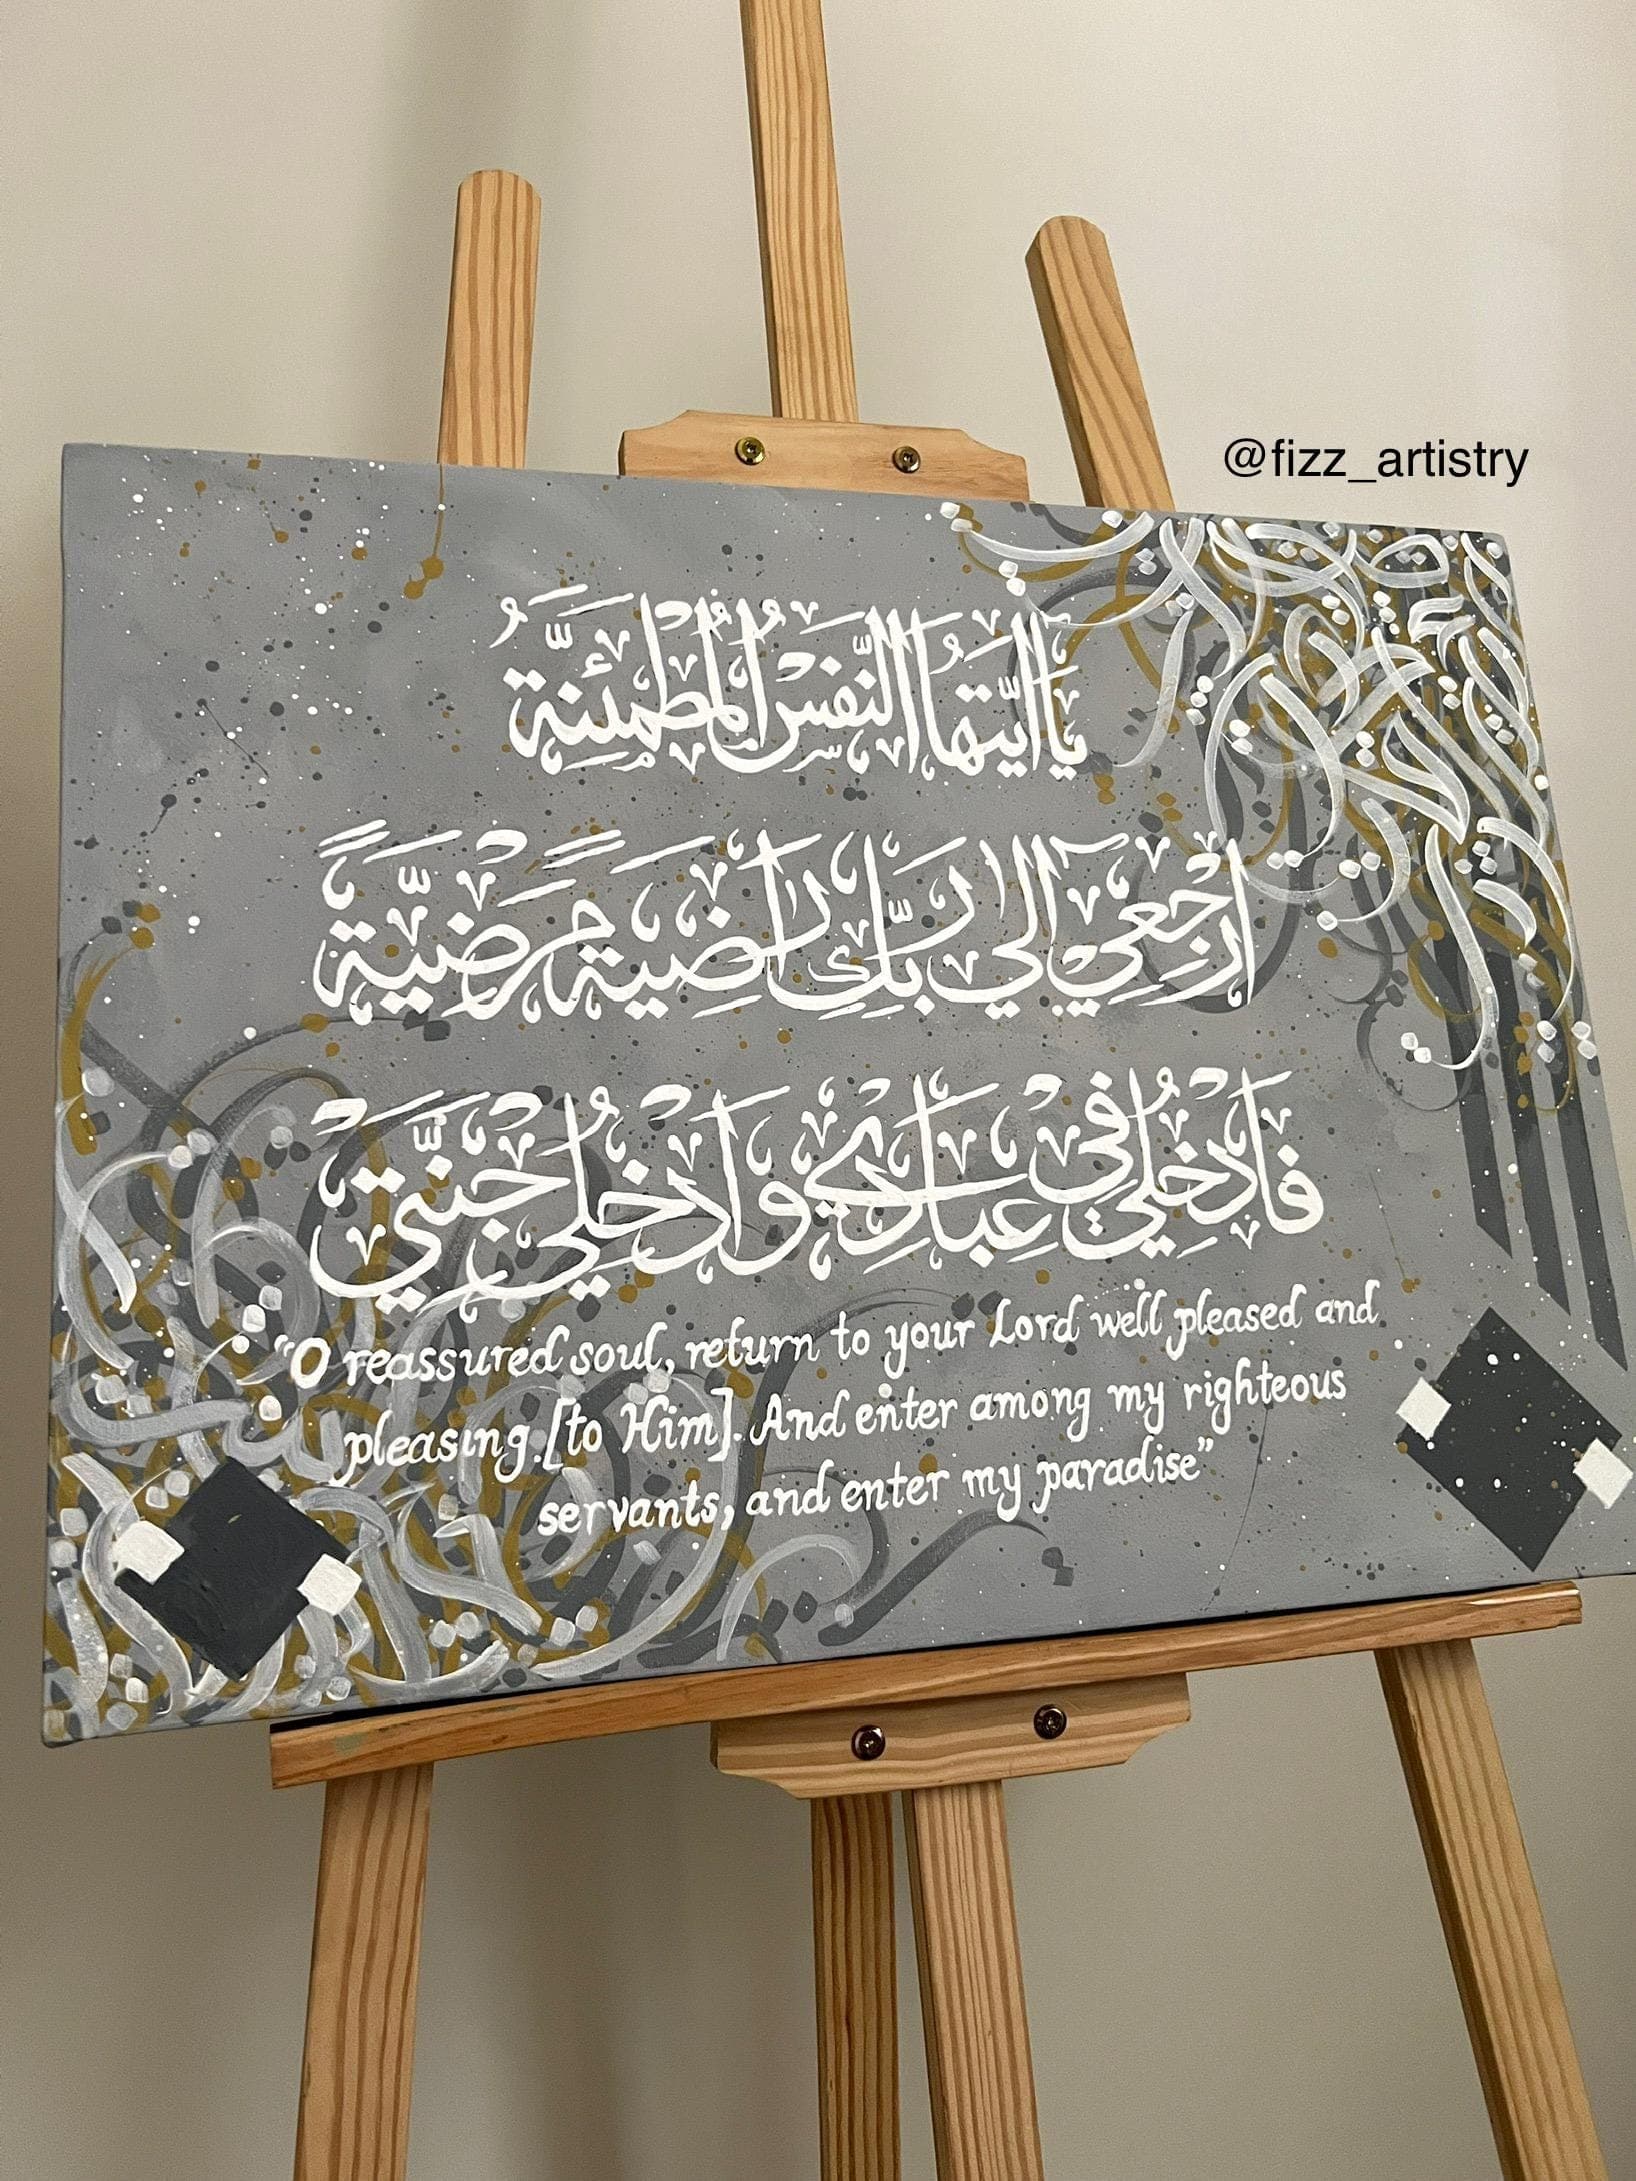 @fizz_artistry
يَا أَيَّتُهَا النَّفْسُ الْمُطْمَئِنَّةُ
ارْجِعِي إِلَى رَبِّكِ رَاضِيَةً مَّرْضِيَّةً
فَادْخُلِي فِي عِبَادِي وَادْخُلِي جَنَّتِي
"O reassured soul, return to your Lord well pleased and
pleasing.[to Him]. And enter among my righteous
servants, and enter my paradise"